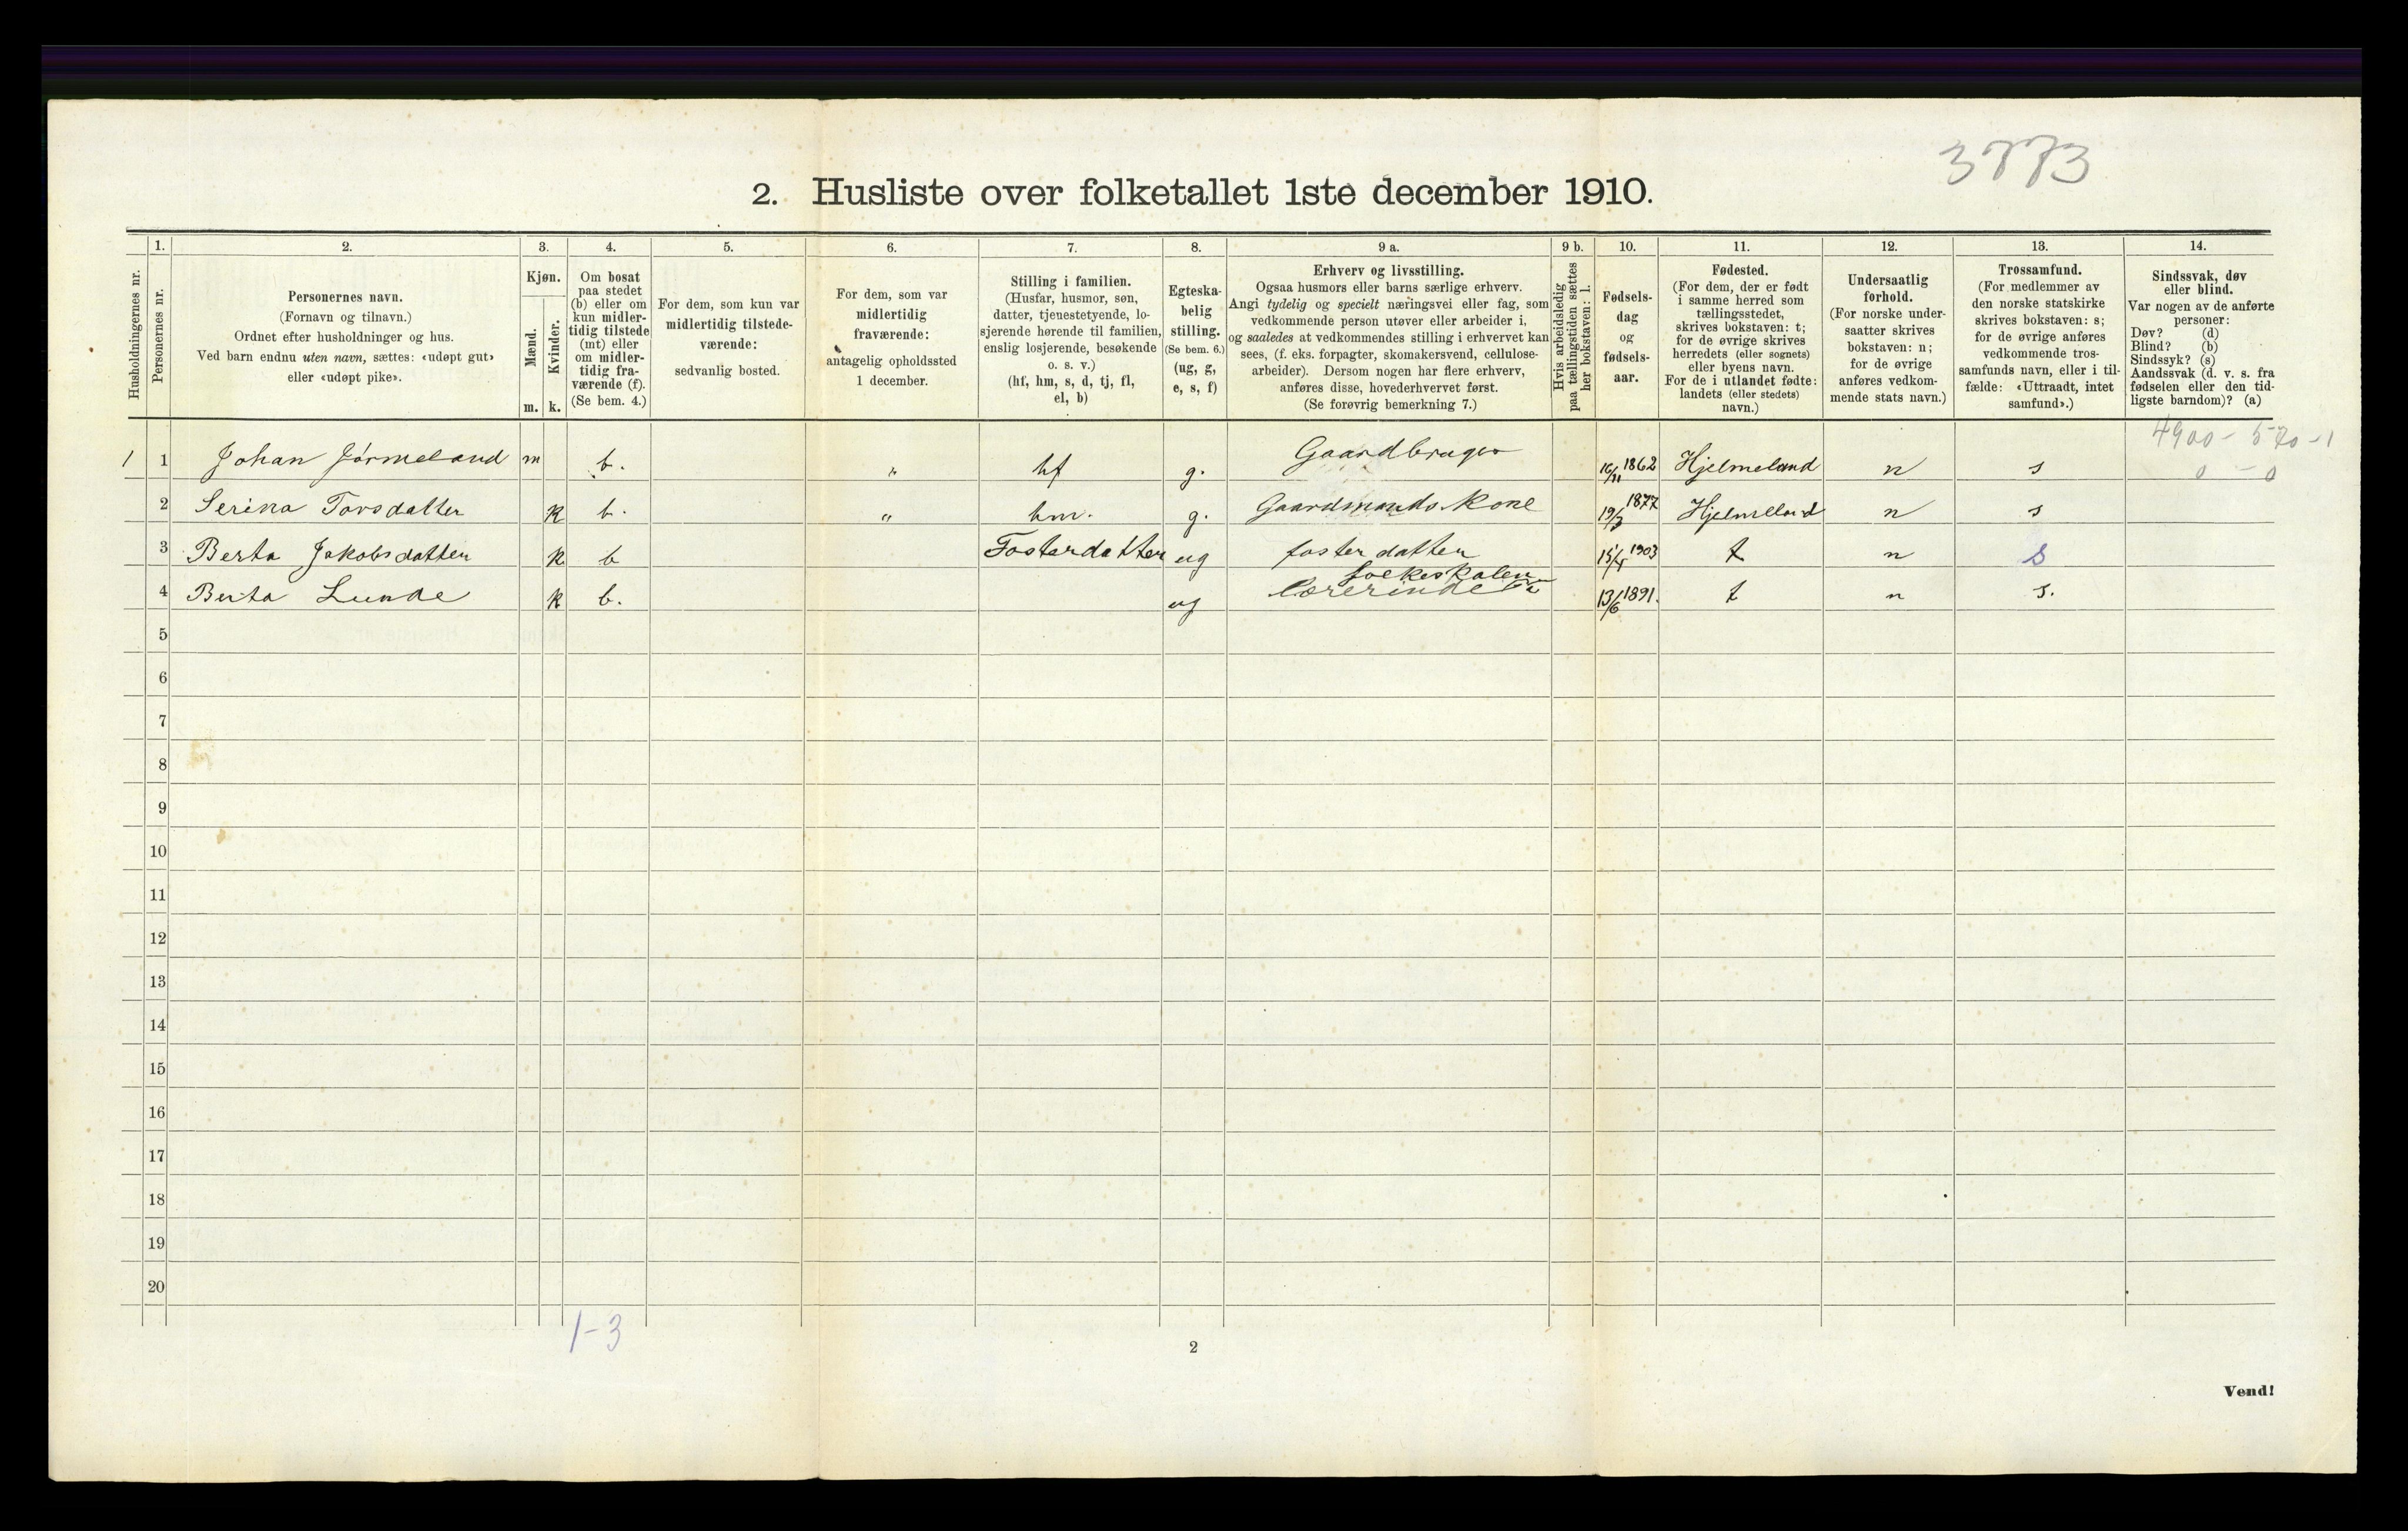 3773
2. Husliste over folketallet 1ste december 1910.
Husholdningernes nr.
1.
Personernes nr.
2.
Personernes navn.
(Fornavn og tilnavn.)
Ordnet efter husholdninger og hus.
Ved barn endnu uten navn, sættes: «udøpt gut»
eller «udøpt pike».
3.
Kjøn.
Mænd.
m.
Kvinder.
k.
4.
Om bosat
paa stedet
(b) eller om
kun midler-
tidig tilstede
(mt) eller
om midler-
tidig fra-
værende (f).
(Se bem. 4.)
5.
For dem, som kun var
midlertidig tilstede-
værende:
sedvanlig bosted.
6.
For dem, som var
midlertidig
fraværende:
antagelig opholdssted
1 december.
7.
Stilling i familien.
(Husfar, husmor, søn,
datter, tjenestetyende, lo-
sjerende hørende til familien,
enslig losjerende, besøkende
o. s. v.)
(hf, hm, s, d, tj, fl,
el, b)
8.
Egteska-
belig
stilling.
(Se bem. 6.)
(ug, g,
e, s, f)
9 a.
Erhverv og livsstilling.
Ogsaa husmors eller barns særlige erhverv.
Angi tydelig og specielt næringsvei eller fag, som
vedkommende person utøver eller arbeider i,
og saaledes at vedkommendes stilling i erhvervet kan
sees, (f. eks. forpagter, skomakersvend, cellulose-
arbeider). Dersom nogen har flere erhverv,
anføres disse, hovederhvervet først.
(Se forøvrig bemerkning 7.)
9 b.
Hvis arbeidsledig
paa tællingstiden sættes
her bokstaven: l.
10.
Fødsels-
dag
og
fødsels-
aar.
11.
Fødested.
(For dem, der er født
i samme herred som
tællingsstedet,
skrives bokstaven: t;
for de øvrige skrives
herredets (eller sognets)
eller byens navn.
For de i utlandet fødte:
landets (eller stedets)
navn.)
12.
Undersaatlig
forhold.
(For norske under-
saatter skrives
bokstaven: n;
for de øvrige
anføres vedkom-
mende stats navn.)
13.
Trossamfund.
(For medlemmer av
den norske statskirke
skrives bokstaven: s;
for de øvrige anføres
vedkommende tros-
samfunds navn, eller i til-
fælde: «Uttraadt, intet
samfund».)
14.
Sindssvak, døv
eller blind.
Var nogen av de anførte
personer:
Døv? (d)
Blind? (b)
Sindssyk? (s)
Aandssvak (d. v. s. fra
fødselen eller den tid-
ligste barndom)? (a)
4900 - 570 - 1
0 - 0
1 1 Johan Jørmeland m b. " hf g. Gaardbruger 1862 Hjelmeland n s
2 Serina Torsdatter k b. " hm. g. Gaardmands Kone 19/3 1877 Hjelmeland n s
3 Berta Jakobsdatter k b Fosterdatter ug foster datter 1903 t n s
folkeskolen
4 Berta Lunde k b. ug Lærerinde 13/6 1891. t n s.
5
6
7
8
9
10
11
12
13
14
15
16
17
18
19
20
1-3
2
Vend!